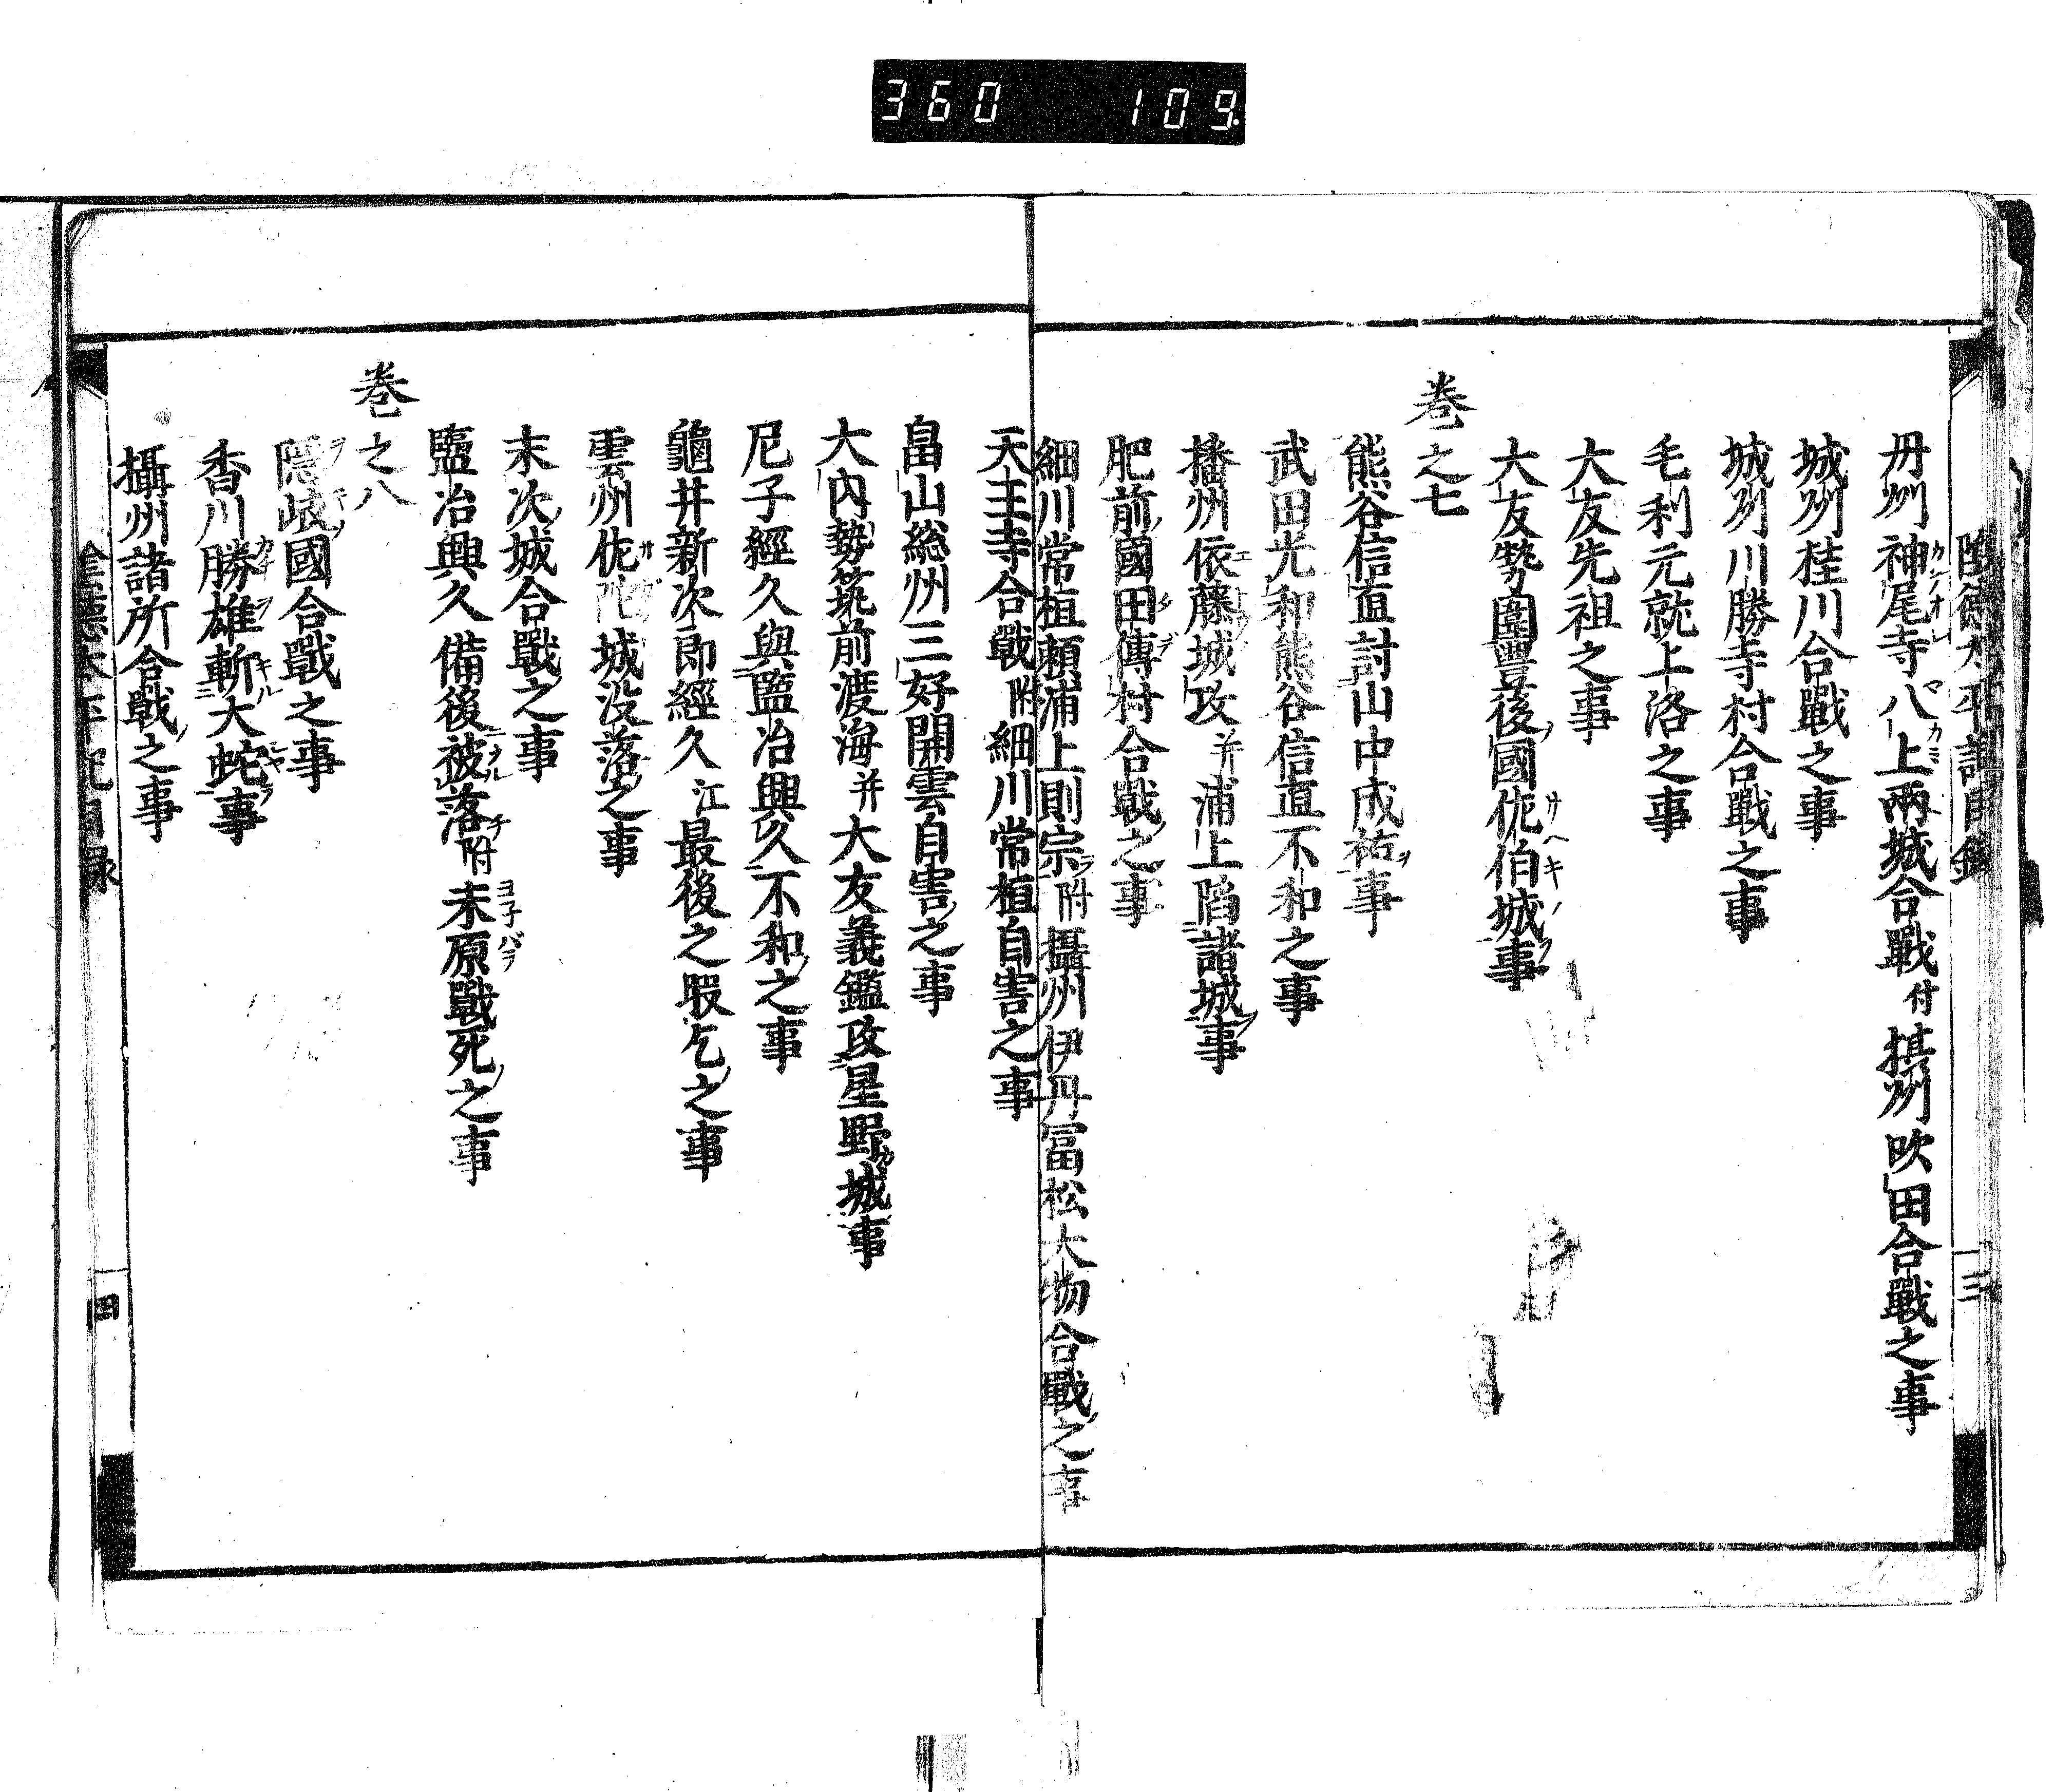 360 109.
丹州神尾寺八上兩城合戰付攝州吹田合戰之事
城州桂川合戰之事
城州川勝寺村合戰之事
毛利元就上洛之事
大友先祖之事
大友勢圍豐後國佐伯城事
卷之七
熊谷信直討山中成祐事
武田光和熊谷信直不和之事
播州依藤城攻并浦上陷諸城事
肥前國田傳村合戰之事
細川常植賴浦上則宗附攝州伊丹冨松大物合戰之事
天王寺合戰附細川常植自害之事
畠山総州三好開雲自害之事
大內勢筑前渡海并大友義鑑攻星野城事
尼子經久與鹽冶興久不和之事
龜井新次郎經久江最後之暇乞之事
雲州佐陀城没落之事
末次城合戰之事
鹽冶興久備後被落附未原戰死之事
卷之八
隱岐國合戰之事
香川勝雄斬大蛇事
攝州諸所合戰之事
四